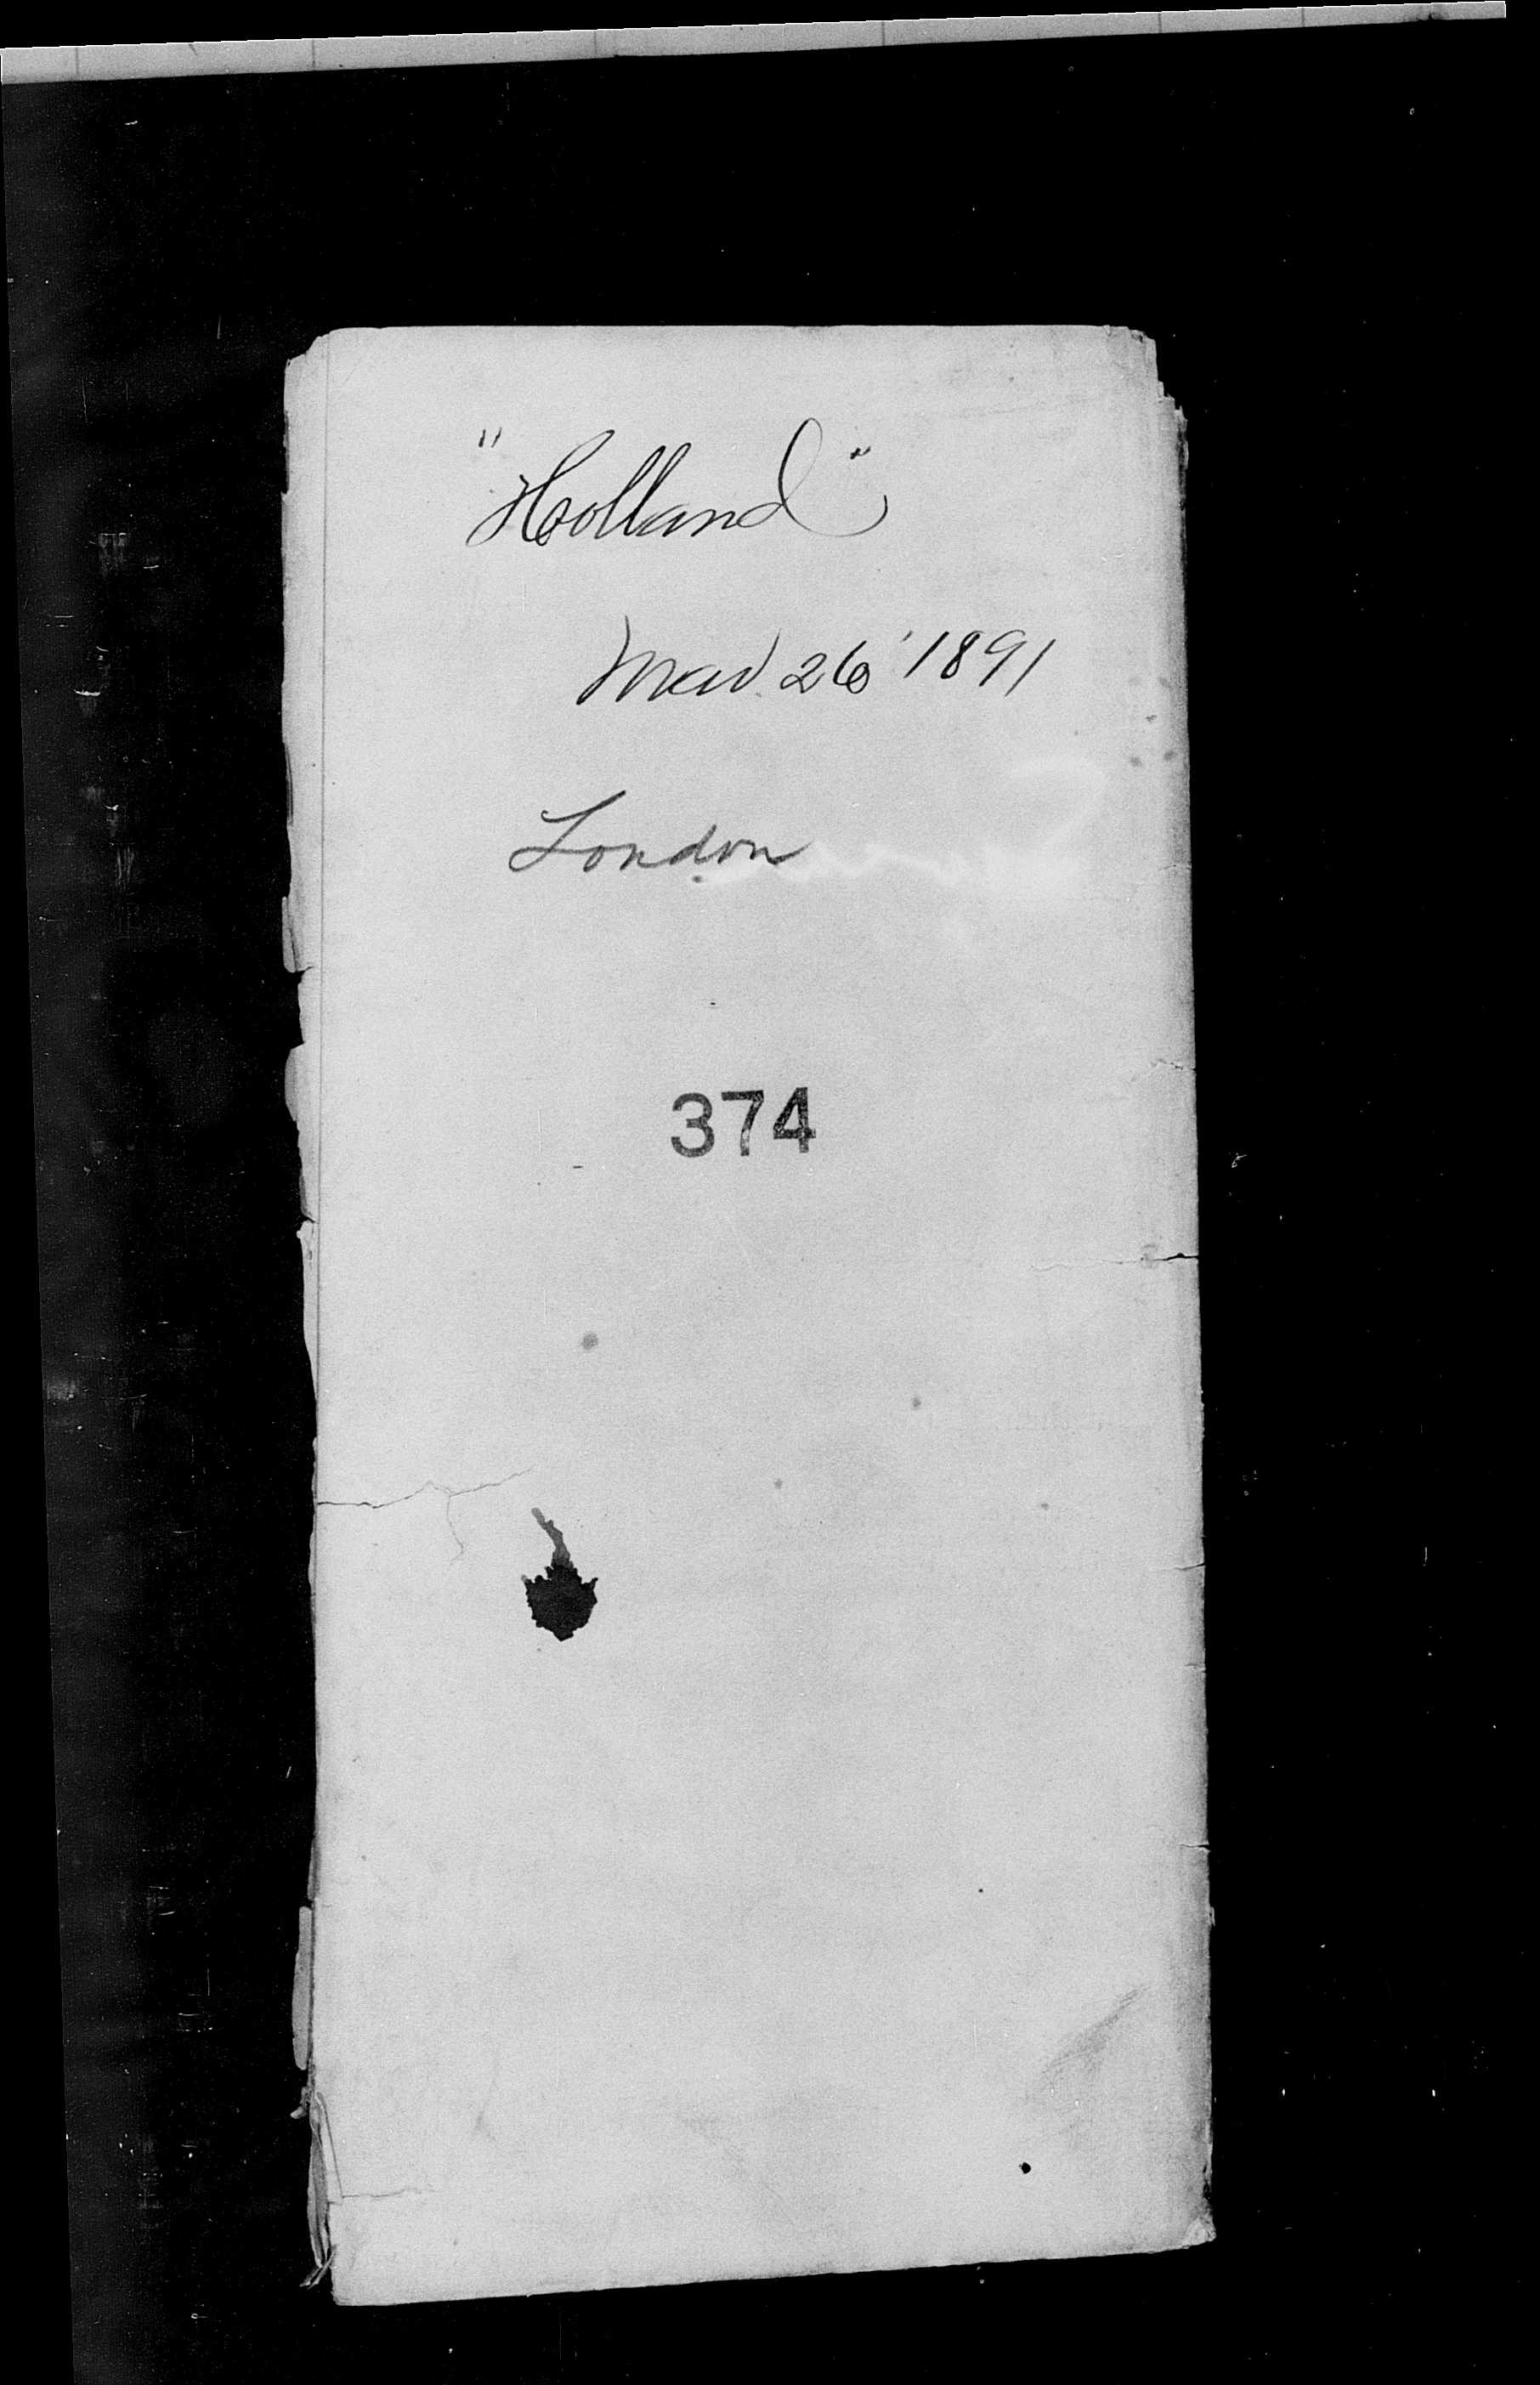 "Holland"
Mar. 26 '1891
London
374